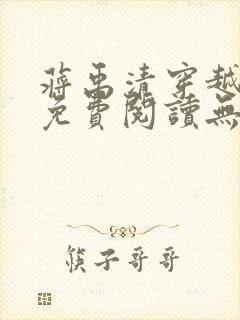 蔣禹清穿越
免費閱讀無
筷子哥哥